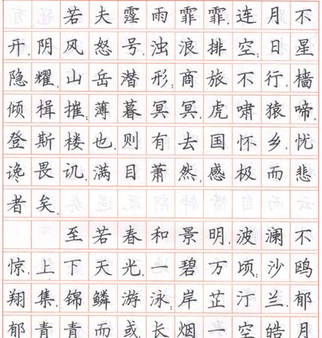 若夫霪雨霏霏,连月不
开,阴风怒号,浊浪排空,日星
隐耀,山岳潜形,商旅不行,樯
倾楫摧,薄暮冥冥,虎啸猿啼.
登斯楼也,则有去国怀乡,忧
谗畏讥,满目萧然,感极而悲
者矣.
至若春和景明,波澜不
惊,上下天光,一碧万顷,沙鸥
翔集,锦鳞游泳,岸芷汀兰,郁
郁青青.而或长烟一空,皓月